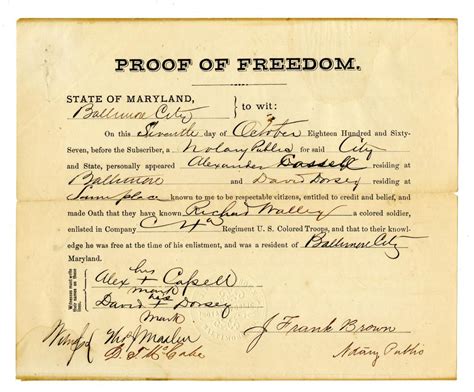 PROOF OF FREEDOM.
STATE OF MARYLAND,
Baltimore City } to wit:
On this Seventh day of October Eighteen Hundred and Sixty-
Seven, before the Subscriber, a Notary Public for said City
and State, personally appeared Alexander Cassell residing at
Baltimore and David Dorsey residing at
Same place known to me to be respectable citizens, entitled to credit and belief, and
made Oath that they have known Richard a colored soldier,
enlisted in Company C Regiment U. S. Colored Troops, and that to their knowledge
he was free at the time of his enlistment, and was a resident of Baltimore City
Maryland.
Witnesses must write their names on these lines.
Alex his + mark Cassell
David his + mark Dorsey
J. Frank Brown
Notary Public